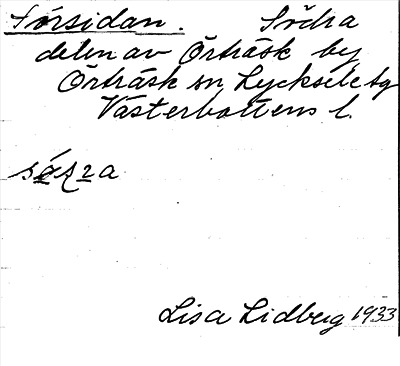 Sörsidan. Södra
delen av Örträsk by
Örträsk sn Lycksele tg
Västerbottens l.
Lisa Lidberg 1933